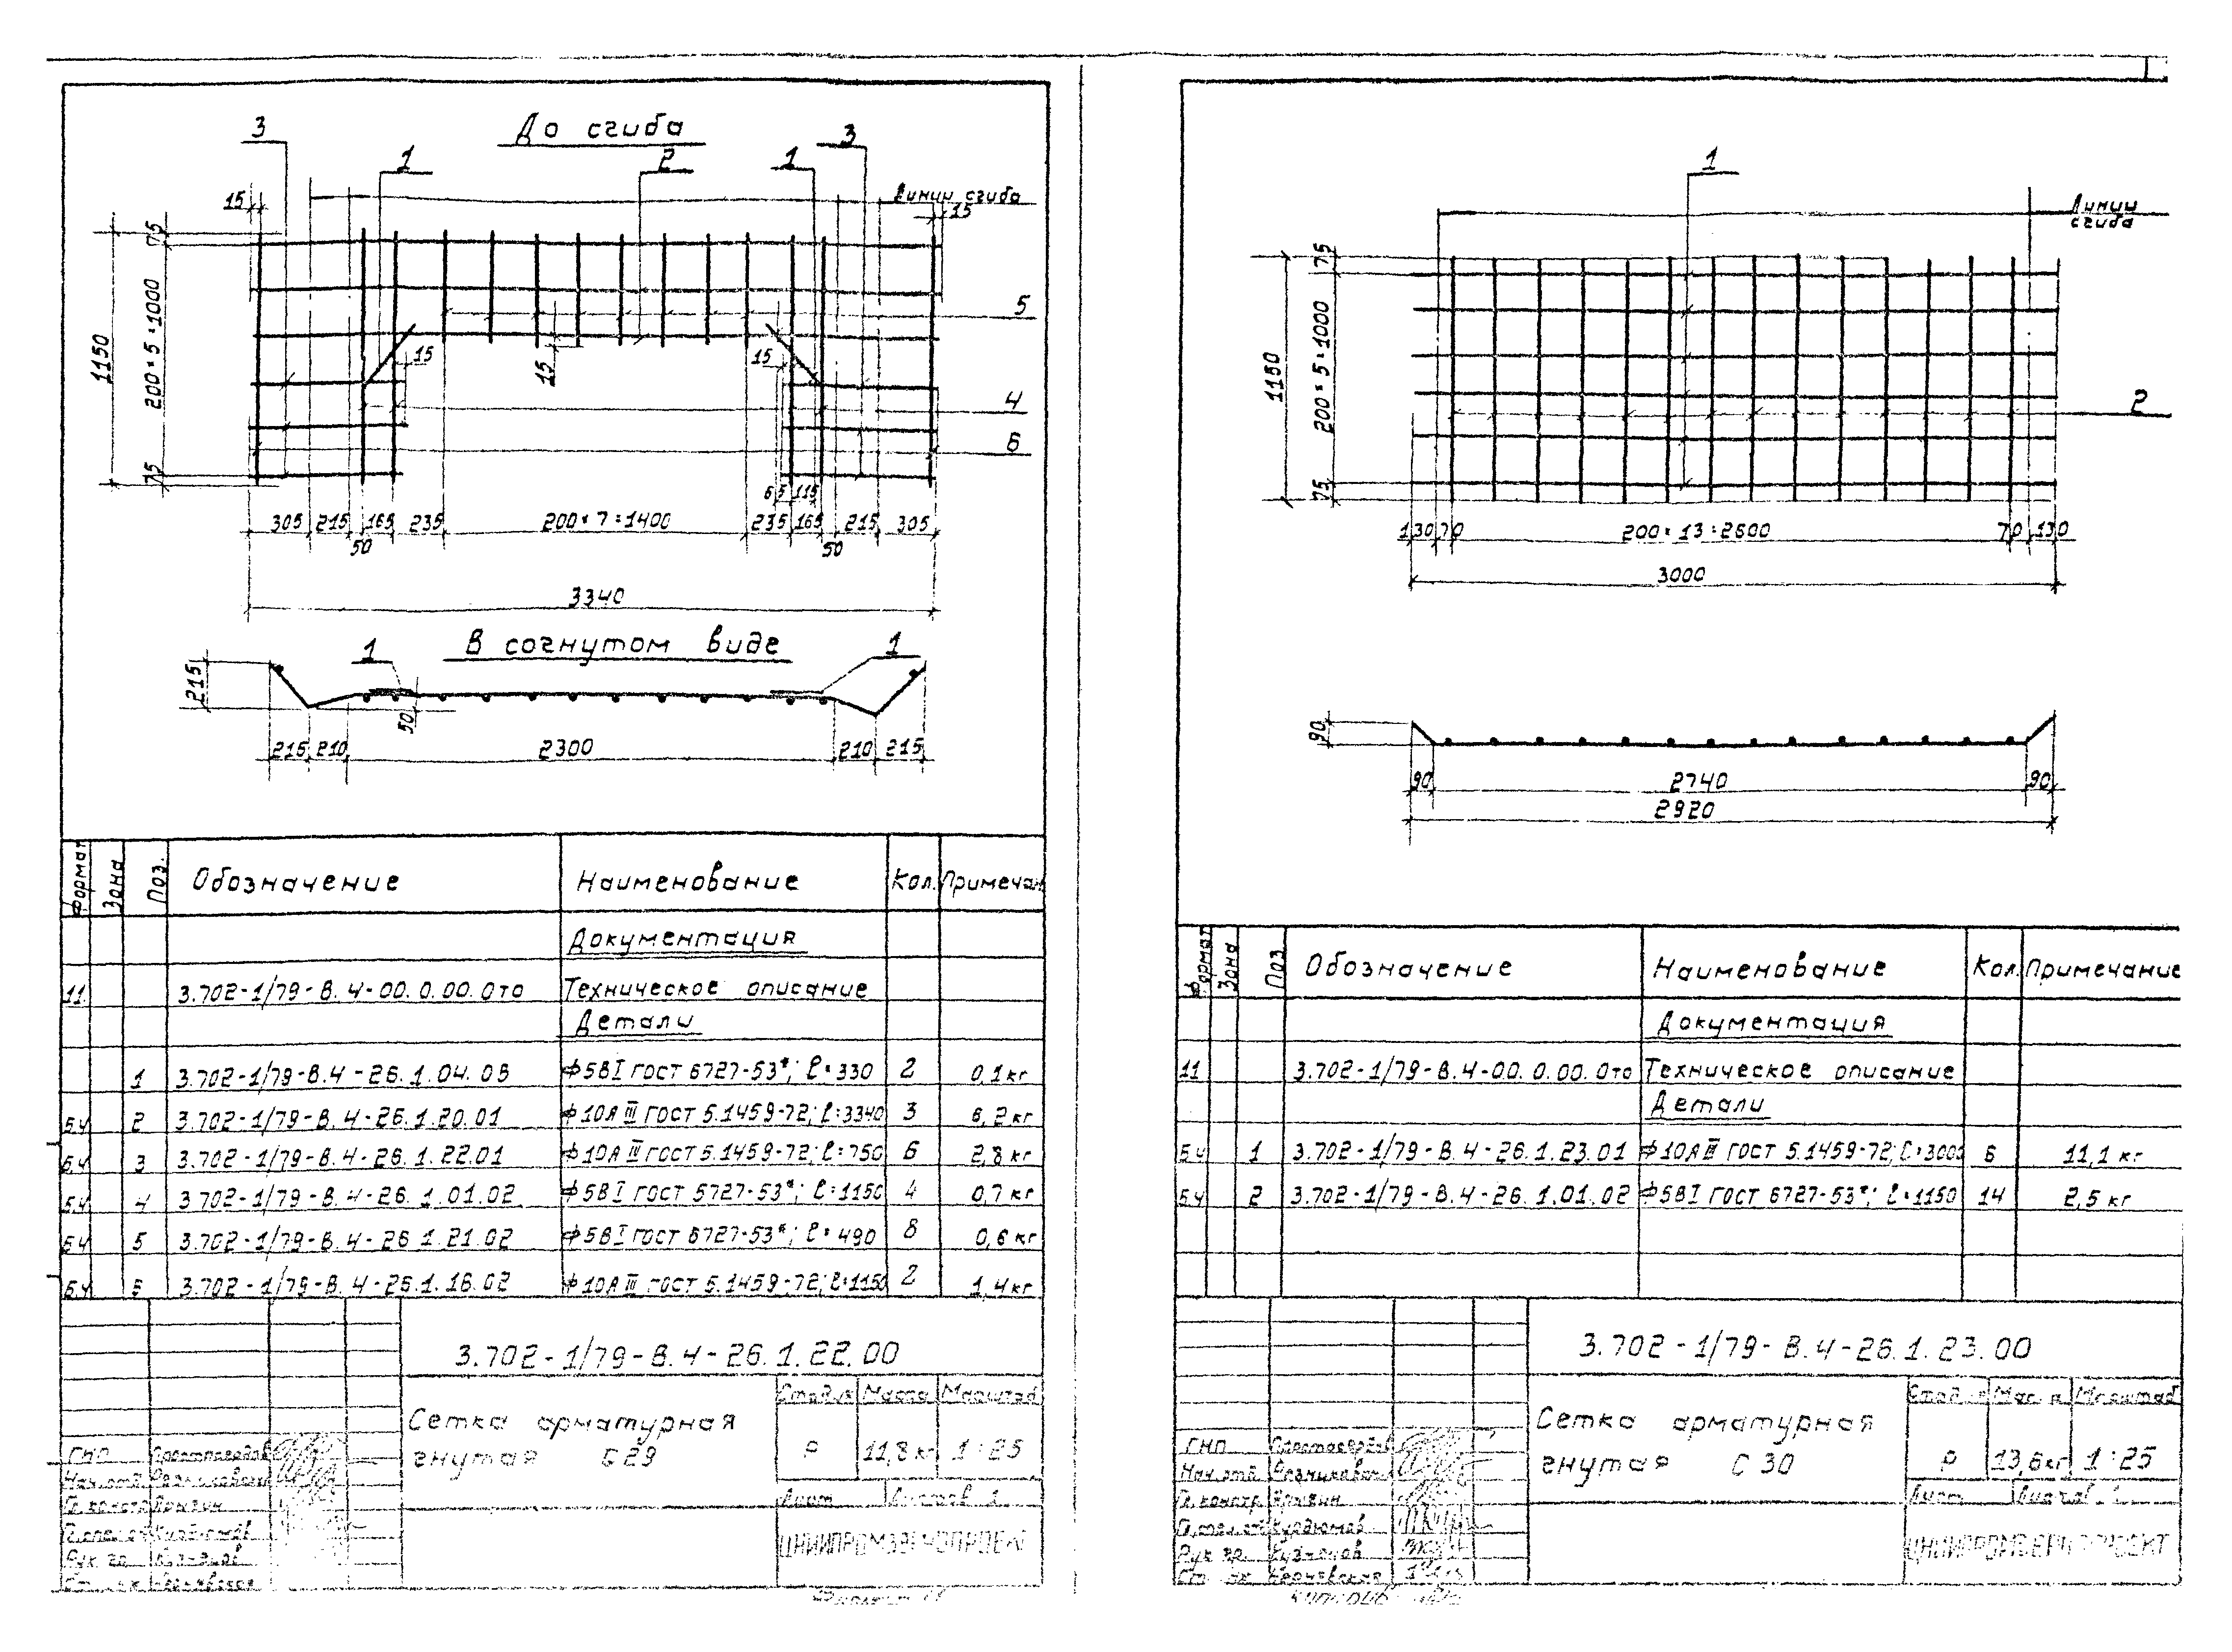 До сгиба
3
1
2
1
3
Линии сгиба
15
15
75
200×5=1000
1150
75
15
15
15
5
4
6
65 115
305 215 165 235 200×7=1400 235 165 215 305
50
50
3340
В согнутом виде
1
1
215
50
215 210 2300 210 215
Формат Зона Поз. Обозначение Наименование Кол. Примечан
Документация
11 3.702-1/79-В.4-00.0.00.0то Техническое описание
Детали
1 3.702-1/79-В.4-26.1.04.03 Ф5ВI ГОСТ 6727-53*; ℓ=330 2 0,1кг
Б.Ч 2 3.702-1/79-В.4-26.1.20.01 Ф10АIII ГОСТ 5.1459-72; ℓ=3340 3 6,2кг
Б.Ч 3 3.702-1/79-В.4-26.1.22.01 Ф10АIII ГОСТ 5.1459-72; ℓ=750 6 2,8кг
Б.Ч 4 3.702-1/79-В.4-26.1.01.02 Ф5ВI ГОСТ 5727-53*; ℓ=1150 4 0,7кг
Б.Ч 5 3.702-1/79-В.4-26.1.21.02 Ф5ВI ГОСТ 6727-53*; ℓ=490 8 0,6кг
Б.Ч 6 3.702-1/79-В.4-26.1.16.02 Ф10АIII ГОСТ 5.1459-72; ℓ=1150 2 1,4кг
3.702-1/79-В.4-26.1.22.00
Сетка арматурная
гнутая С29
Стадия Масса Масштаб
Р 11,8кг 1:25
Лист Листов 1
ГИП
Нач.отд.
Рук. гр.
1
Линии
сгиба
75
200×5=1000
1150
75
2
130 70 200×13=2600 70 130
3000
90
90 2740 90
2920
Формат Зона Поз Обозначение Наименование Кол. Примечание
Документация
11 3.702-1/79-В.4-00.0.00.0то Техническое описание
Детали
Б.Ч 1 3.702-1/79-В.4-26.1.23.01 Ф10АIII ГОСТ 5.1459-72; ℓ=3000 6 11,1кг
Б.Ч 2 3.702-1/79-В.4-26.1.01.02 Ф5ВI ГОСТ 6727-53*; ℓ=1150 14 2,5кг
3.702-1/79-В.4-26.1.23.00
Сетка арматурная
гнутая С30
Масштаб
Р 13,6кг 1:25
Лист
ГИП
Нач.отд.
Гл.констр.
Курдюмов
Рук. гр. Кузнецов